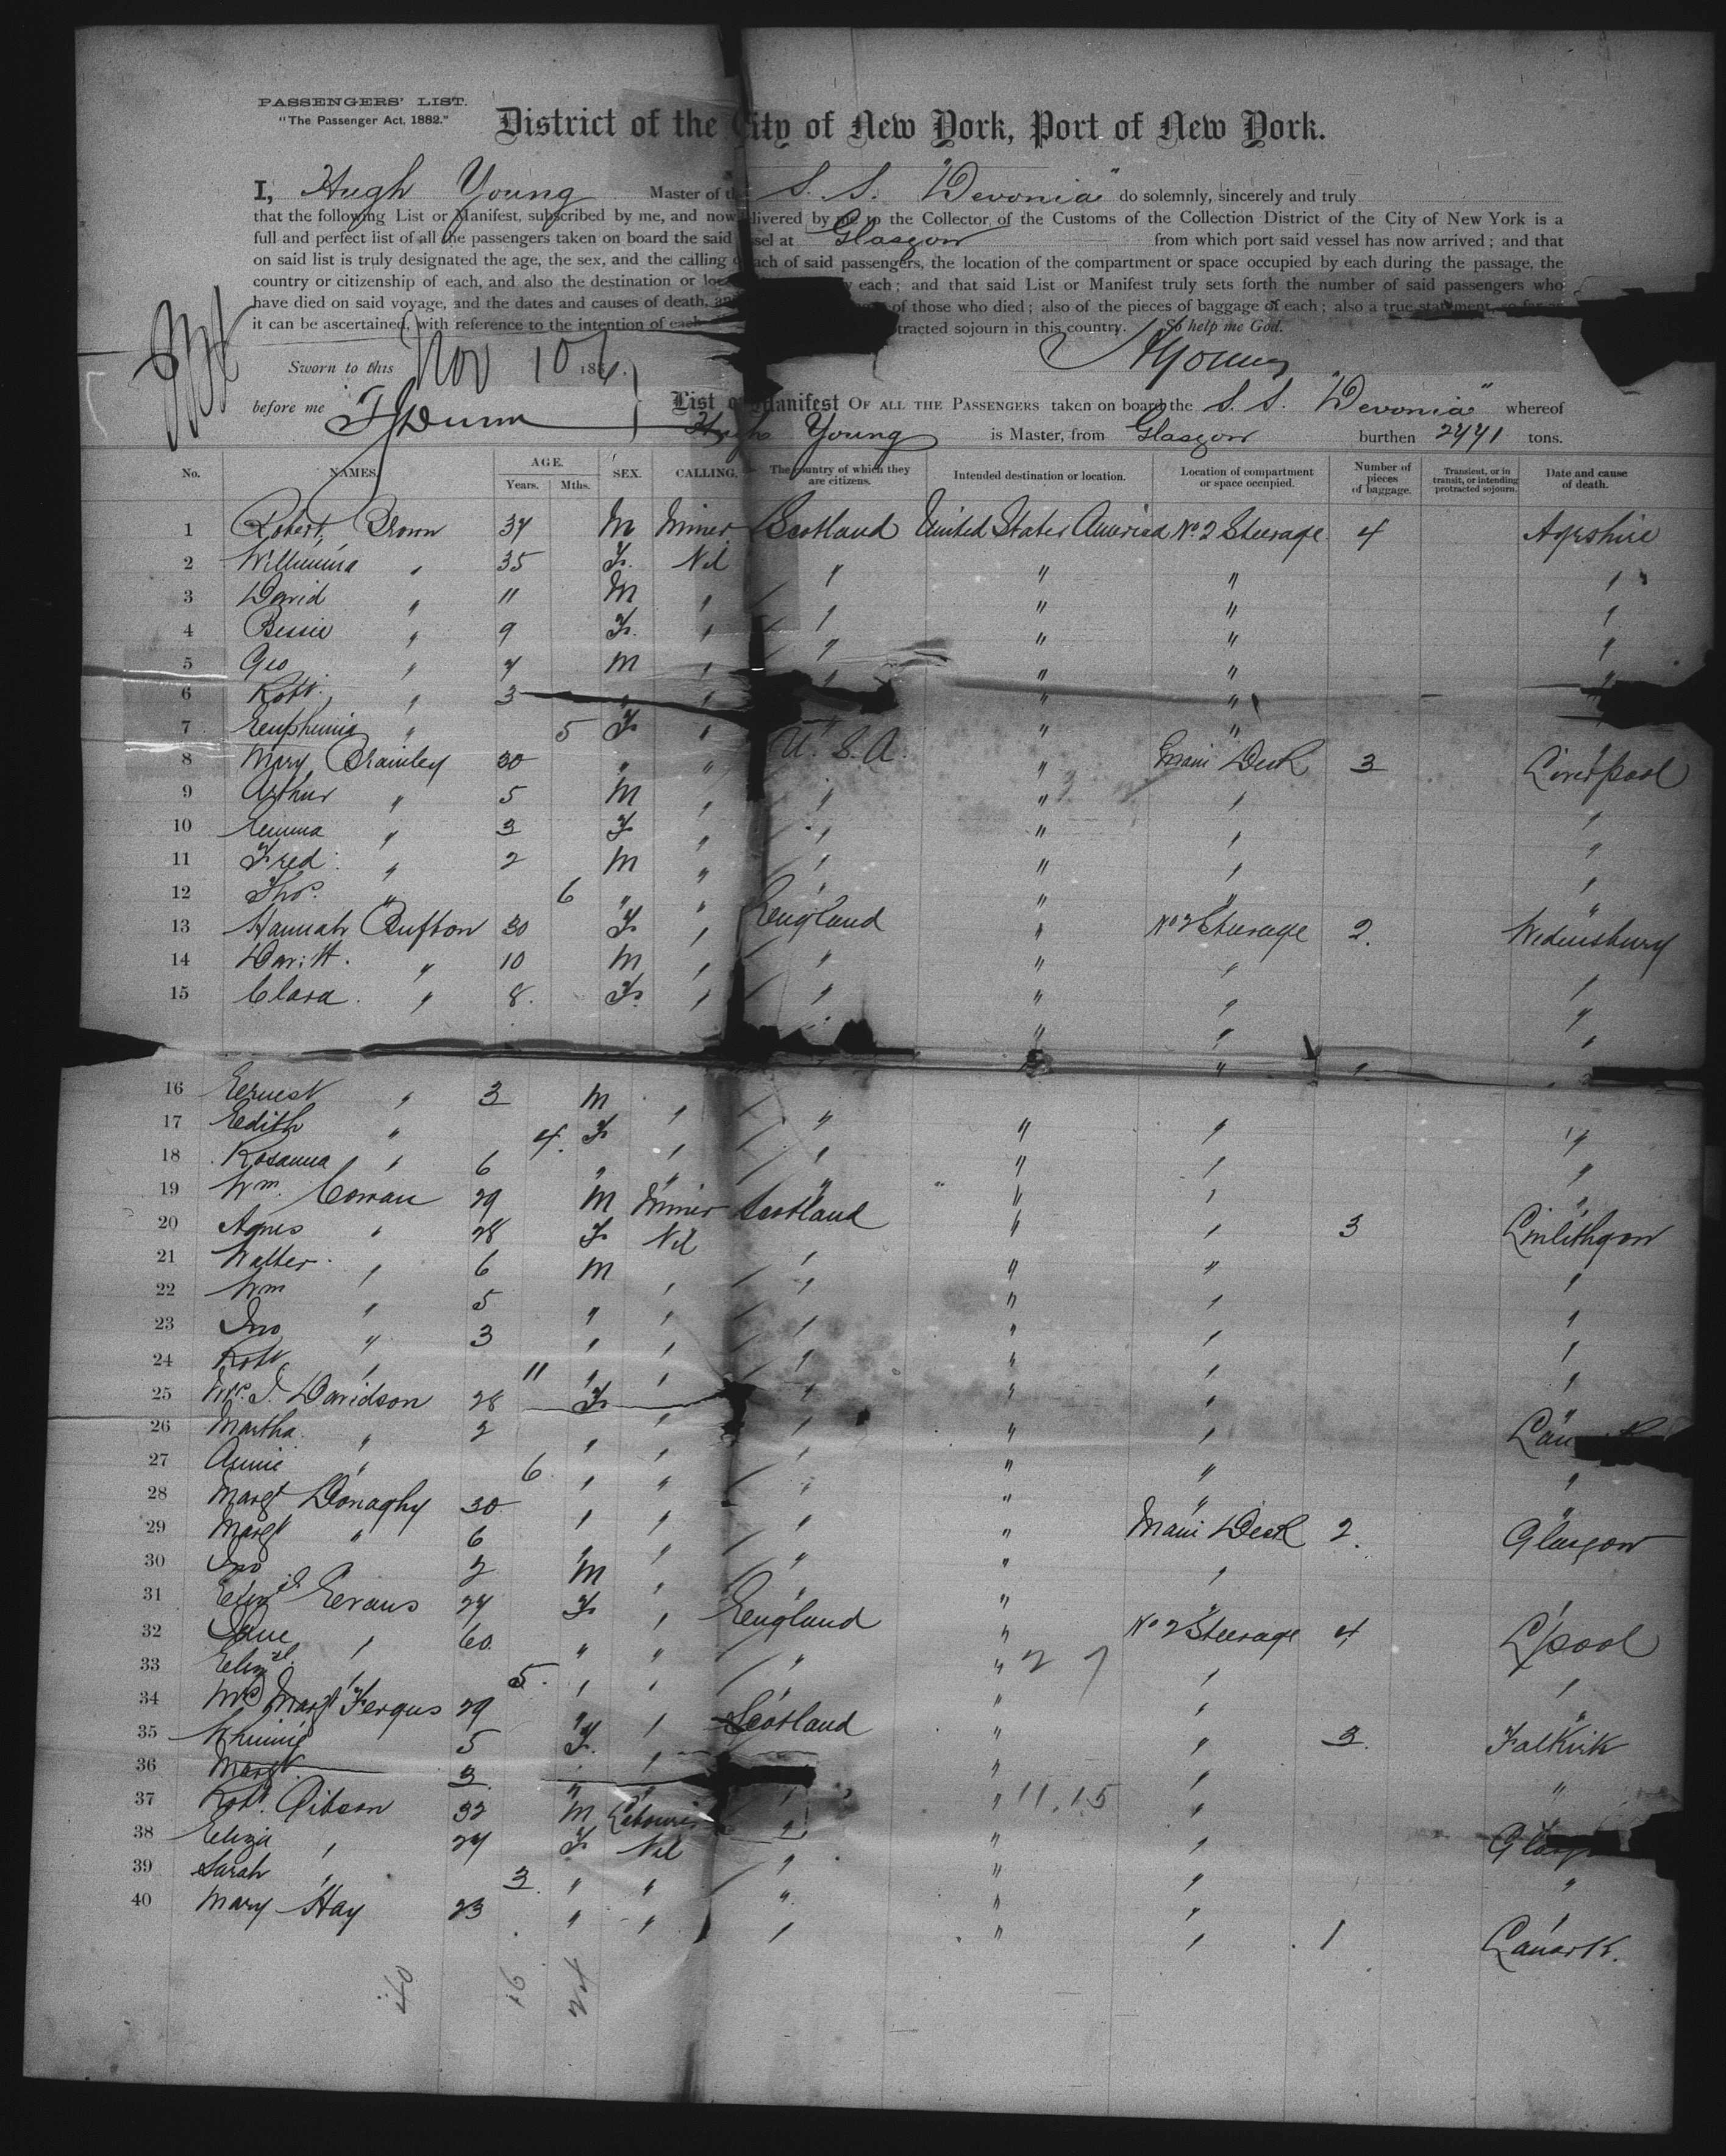 PASSENGERS' LIST.
"The Passenger Act, 1882."
District of the City of New York, Port of New York.
I, Hugh Young Master of the S. S. "Devonia" do solemnly, sincerely and truly
that the following List or Manifest, subscribed by me, and now delivered by me to the Collector of the Customs of the Collection District of the City of New York is a
full and perfect list of all the passengers taken on board the said vessel at Glasgow from which port said vessel has now arrived; and that
on said list is truly designated the age, the sex, and the calling of each of said passengers, the location of the compartment or space occupied by each during the passage, the
country or citizenship of each, and also the destination or each; and that said List or Manifest truly sets forth the number of said passengers who
have died on said voyage, and the dates and causes of death, and of those who died; also of the pieces of baggage of each; also a true statement, so far as
it can be ascertained, with reference to the intention of each sojourn in this country. So help me God.
Sworn to this Nov 10 188 HYoung
before me
List or Manifest OF ALL THE PASSENGERS taken on board the S. S. "Devonia" whereof
Hugh Young is Master, from Glasgow burthen tons.
No. NAMES. AGE. Years. Mths. SEX. CALLING. The country of which they are citizens. Intended destination or location. Location of compartment or space occupied. Number of pieces of baggage. Transient, or in transit, or intending protracted sojourn. Date and cause of death.
1 Robert Brown 37 M Miner Scotland United States America No 2 Steerage 4 Ayrshire
2 Willimina " 35 F. Nil " " " "
3 David " 11 M " " " " "
4 Bessie " 9 F. " " " " "
5 Geo " 7 M " " " " "
6 Robt. " 3 " " " " "
7 Euphemia " 5 F " " " "
8 Mary Bramley 30 " " U. S. A. " Main Deck 3 Liverpool
9 Arthur " 5 M " " " " "
10 Emma " 3 F " " " " "
11 Fred " 2 M " " " " "
12 Thos. " 6 " " " " " "
13 Hannah Bufton 30 F " England " No 2 Steerage 2. Wedensbury
14 " 10 M " " " " "
15 Clara. " 8. F. " " " " "
16 Ernest " 3 M " " " " "
17 Edith " 4. F " " " " "
18 Rosanna " 6 " " " " " "
19 Wm. Cowan 29 M Miner Scotland " " 3 Linlithgow
20 Agnes " 28 F Nil " " " "
21 Walter. " 6 M " " " " "
22 Wm " 5 " " " " " "
23 Jno " 3 " " " " " "
24 Robt " 11 " " " " " "
25 Mrs. J. Davidson 28 F " " " "
26 Martha " 2 " " " " " "
27 Annie " 6. " " " " " "
28 Margt Donaghy 30 " " " " Main Deck 2. Glasgow
29 Margt " 6 " " " " "
30 Jno 2 M " " "
31 Evans 27 F " England " No 2 Steerage 4 L'pool
32 Jane " 60 " " " " " "
33 " 5. " " " " "
34 Mrs Margt Fergus 29 " " Scotland " " 3. Falkirk
35 5 F. " " "
36 Margt. 3 " " " " " "
37 Robt. Gibson 32 M " " "
38 Eliza " 27 F Nil " " "
39 Sarah " 3. " " " " " "
40 Mary Hay 23 " " " " " 1 Lanark.
2 7
11.15
40
16
24